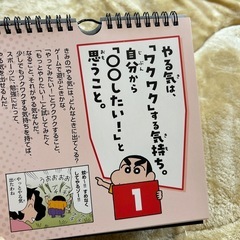 やる気は、
「ワクワク」する気持ち。
自分から
「〇〇したい！」と
思うこと。
1
ゲームで遊ぶときかな。
「やってみたい！」とワクワクすること
「もっとやりたい！」と試してみたく
なること。それがやる気なんだ。
スポーツに、勉強にだって、
少しでもワクワクする気持ちを持て
してみるゾー!!
うおおおお
やっとやる気
出たわね